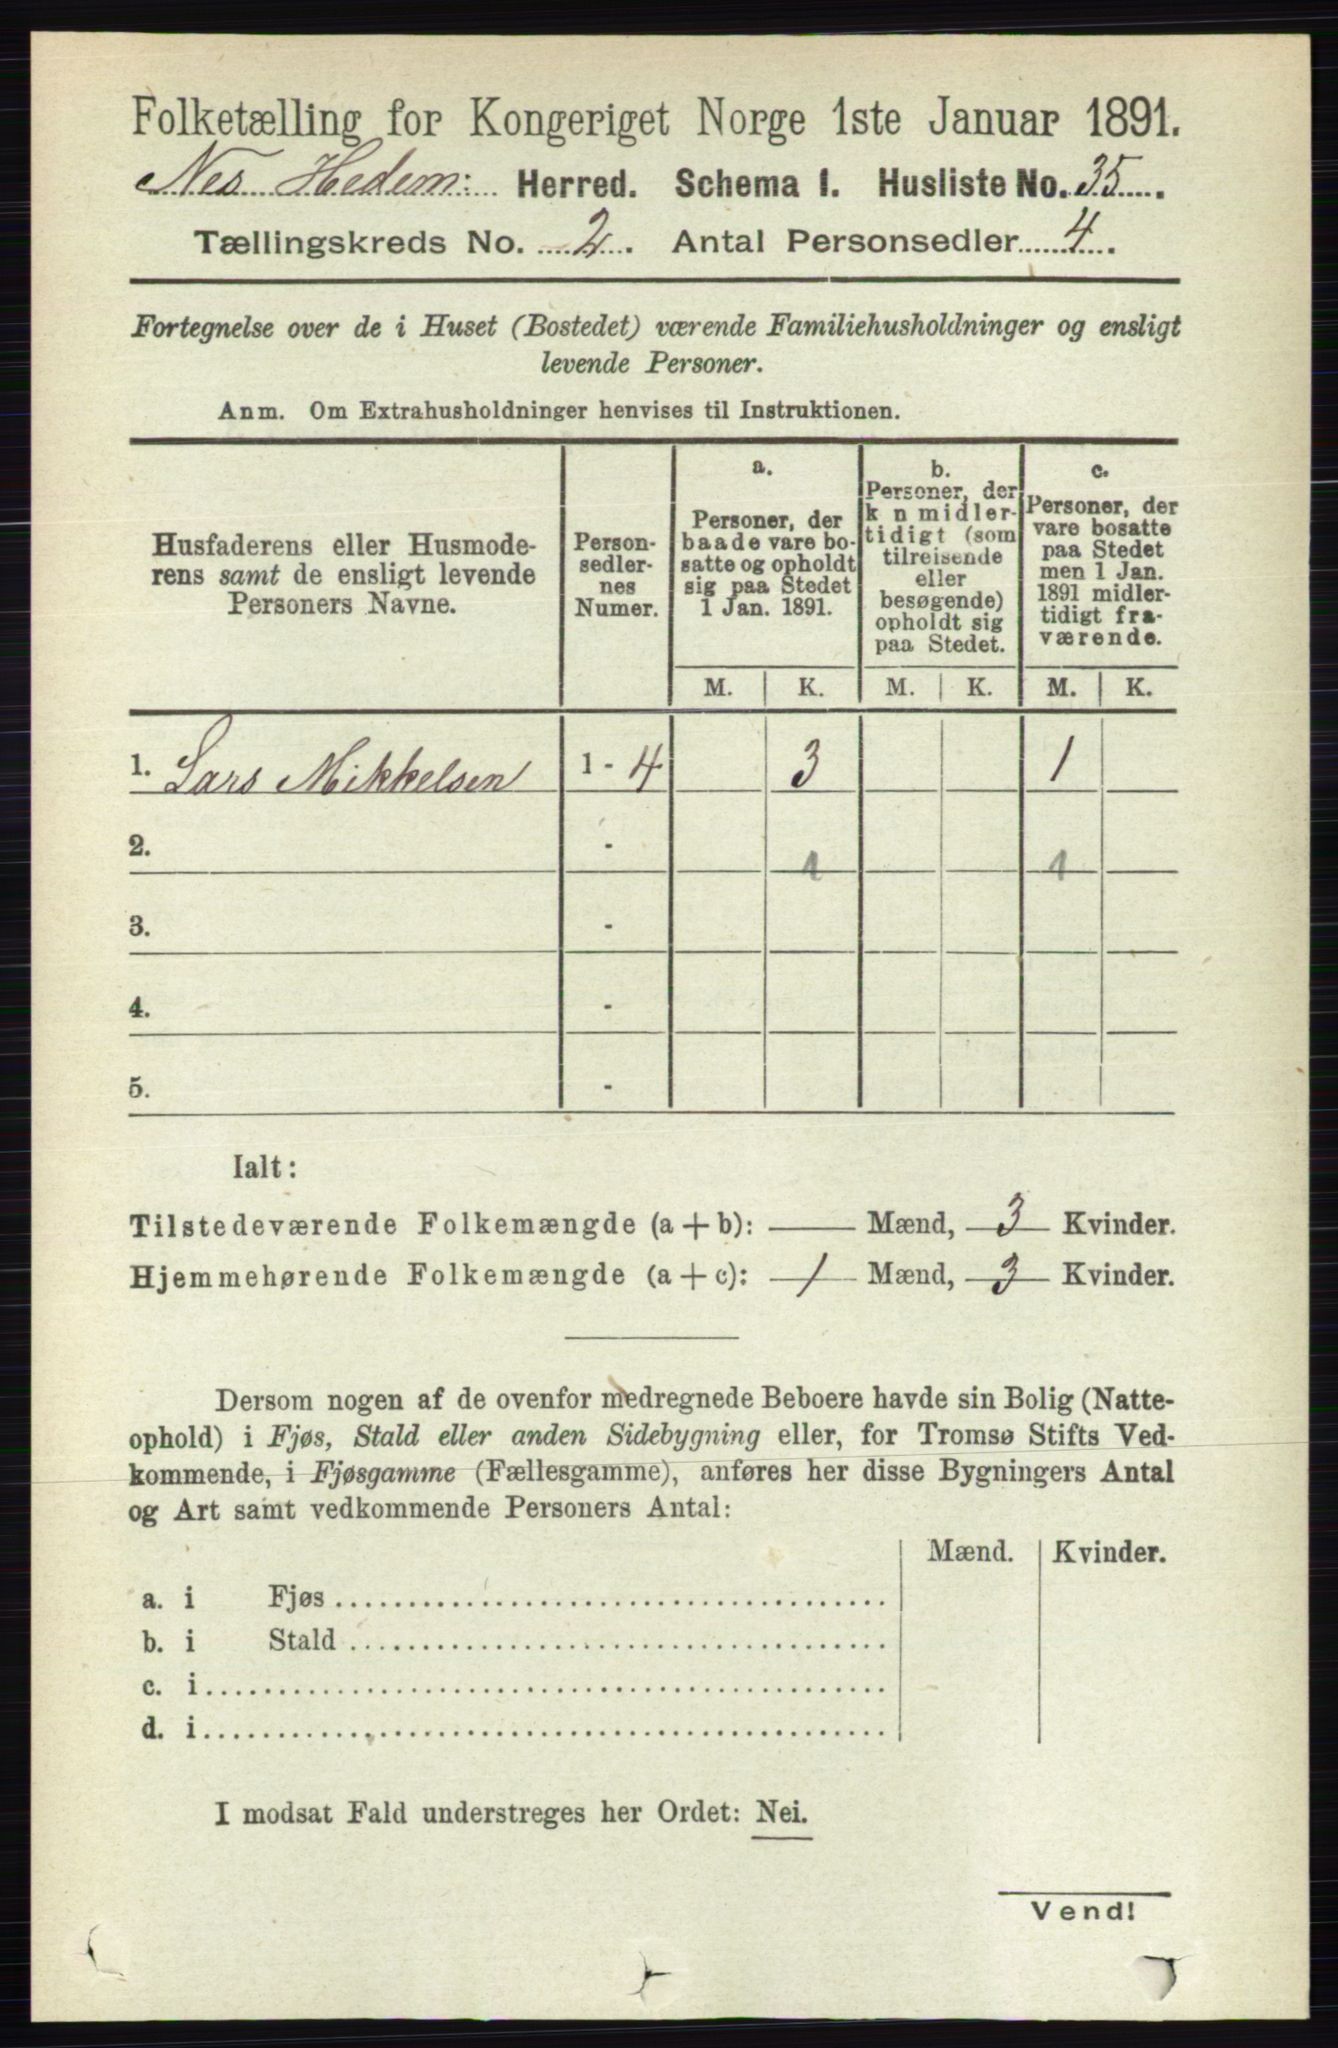 Folketælling for Kongeriget Norge 1ste Januar 1891.
Nes Hedem: Herred. Schema 1. Husliste No. 35
Tællingskreds No. 2. Antal Personsedler 4.
Fortegnelse over de i Huset (Bostedet) værende Familiehusholdninger og ensligt
levende Personer.
Anm. Om Extrahusholdninger henvises til Instruktionen.
Husfaderens eller Husmode-
rens samt de ensligt levende
Personers Navne.
Person-
sedler-
nes
Numer.
a.
Personer, der
baade vare bo-
satte og opholdt
sig paa Stedet
1 Jan. 1891.
b.
Personer, der
k n midler-
tidigt (som
tilreisende
eller
besøgende)
opholdt sig
paa Stedet.
c.
Personer, der
vare bosatte
paa Stedet
men 1 Jan.
1891 midler-
tidigt fra-
værende.
M. K. M. K. M. K.
1. Lars Mikkelsen 1 - 4 3 1
2. - 1 1
3. -
4. -
5. -
Ialt:
Tilstedeværende Folkemængde (a + b): — Mænd, 3 Kvinder.
Hjemmehørende Folkemængde (a + c): 1 Mænd, 3 Kvinder.
Dersom nogen af de ovenfor medregnede Beboere havde sin Bolig (Natte-
ophold) i Fjøs, Stald eller anden Sidebygning eller, for Tromsø Stifts Ved-
kommende, i Fjøsgamme (Fællesgamme), anføres her disse Bygningers Antal
og Art samt vedkommende Personers Antal:
Mænd. Kvinder.
a. i Fjøs
b. i Stald
c. i
d. i
I modsat Fald understreges her Ordet: Nei.
Vend!